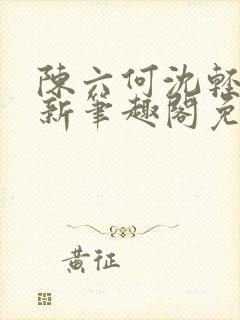 陳六何沈輕
新筆趣閣免
黃征